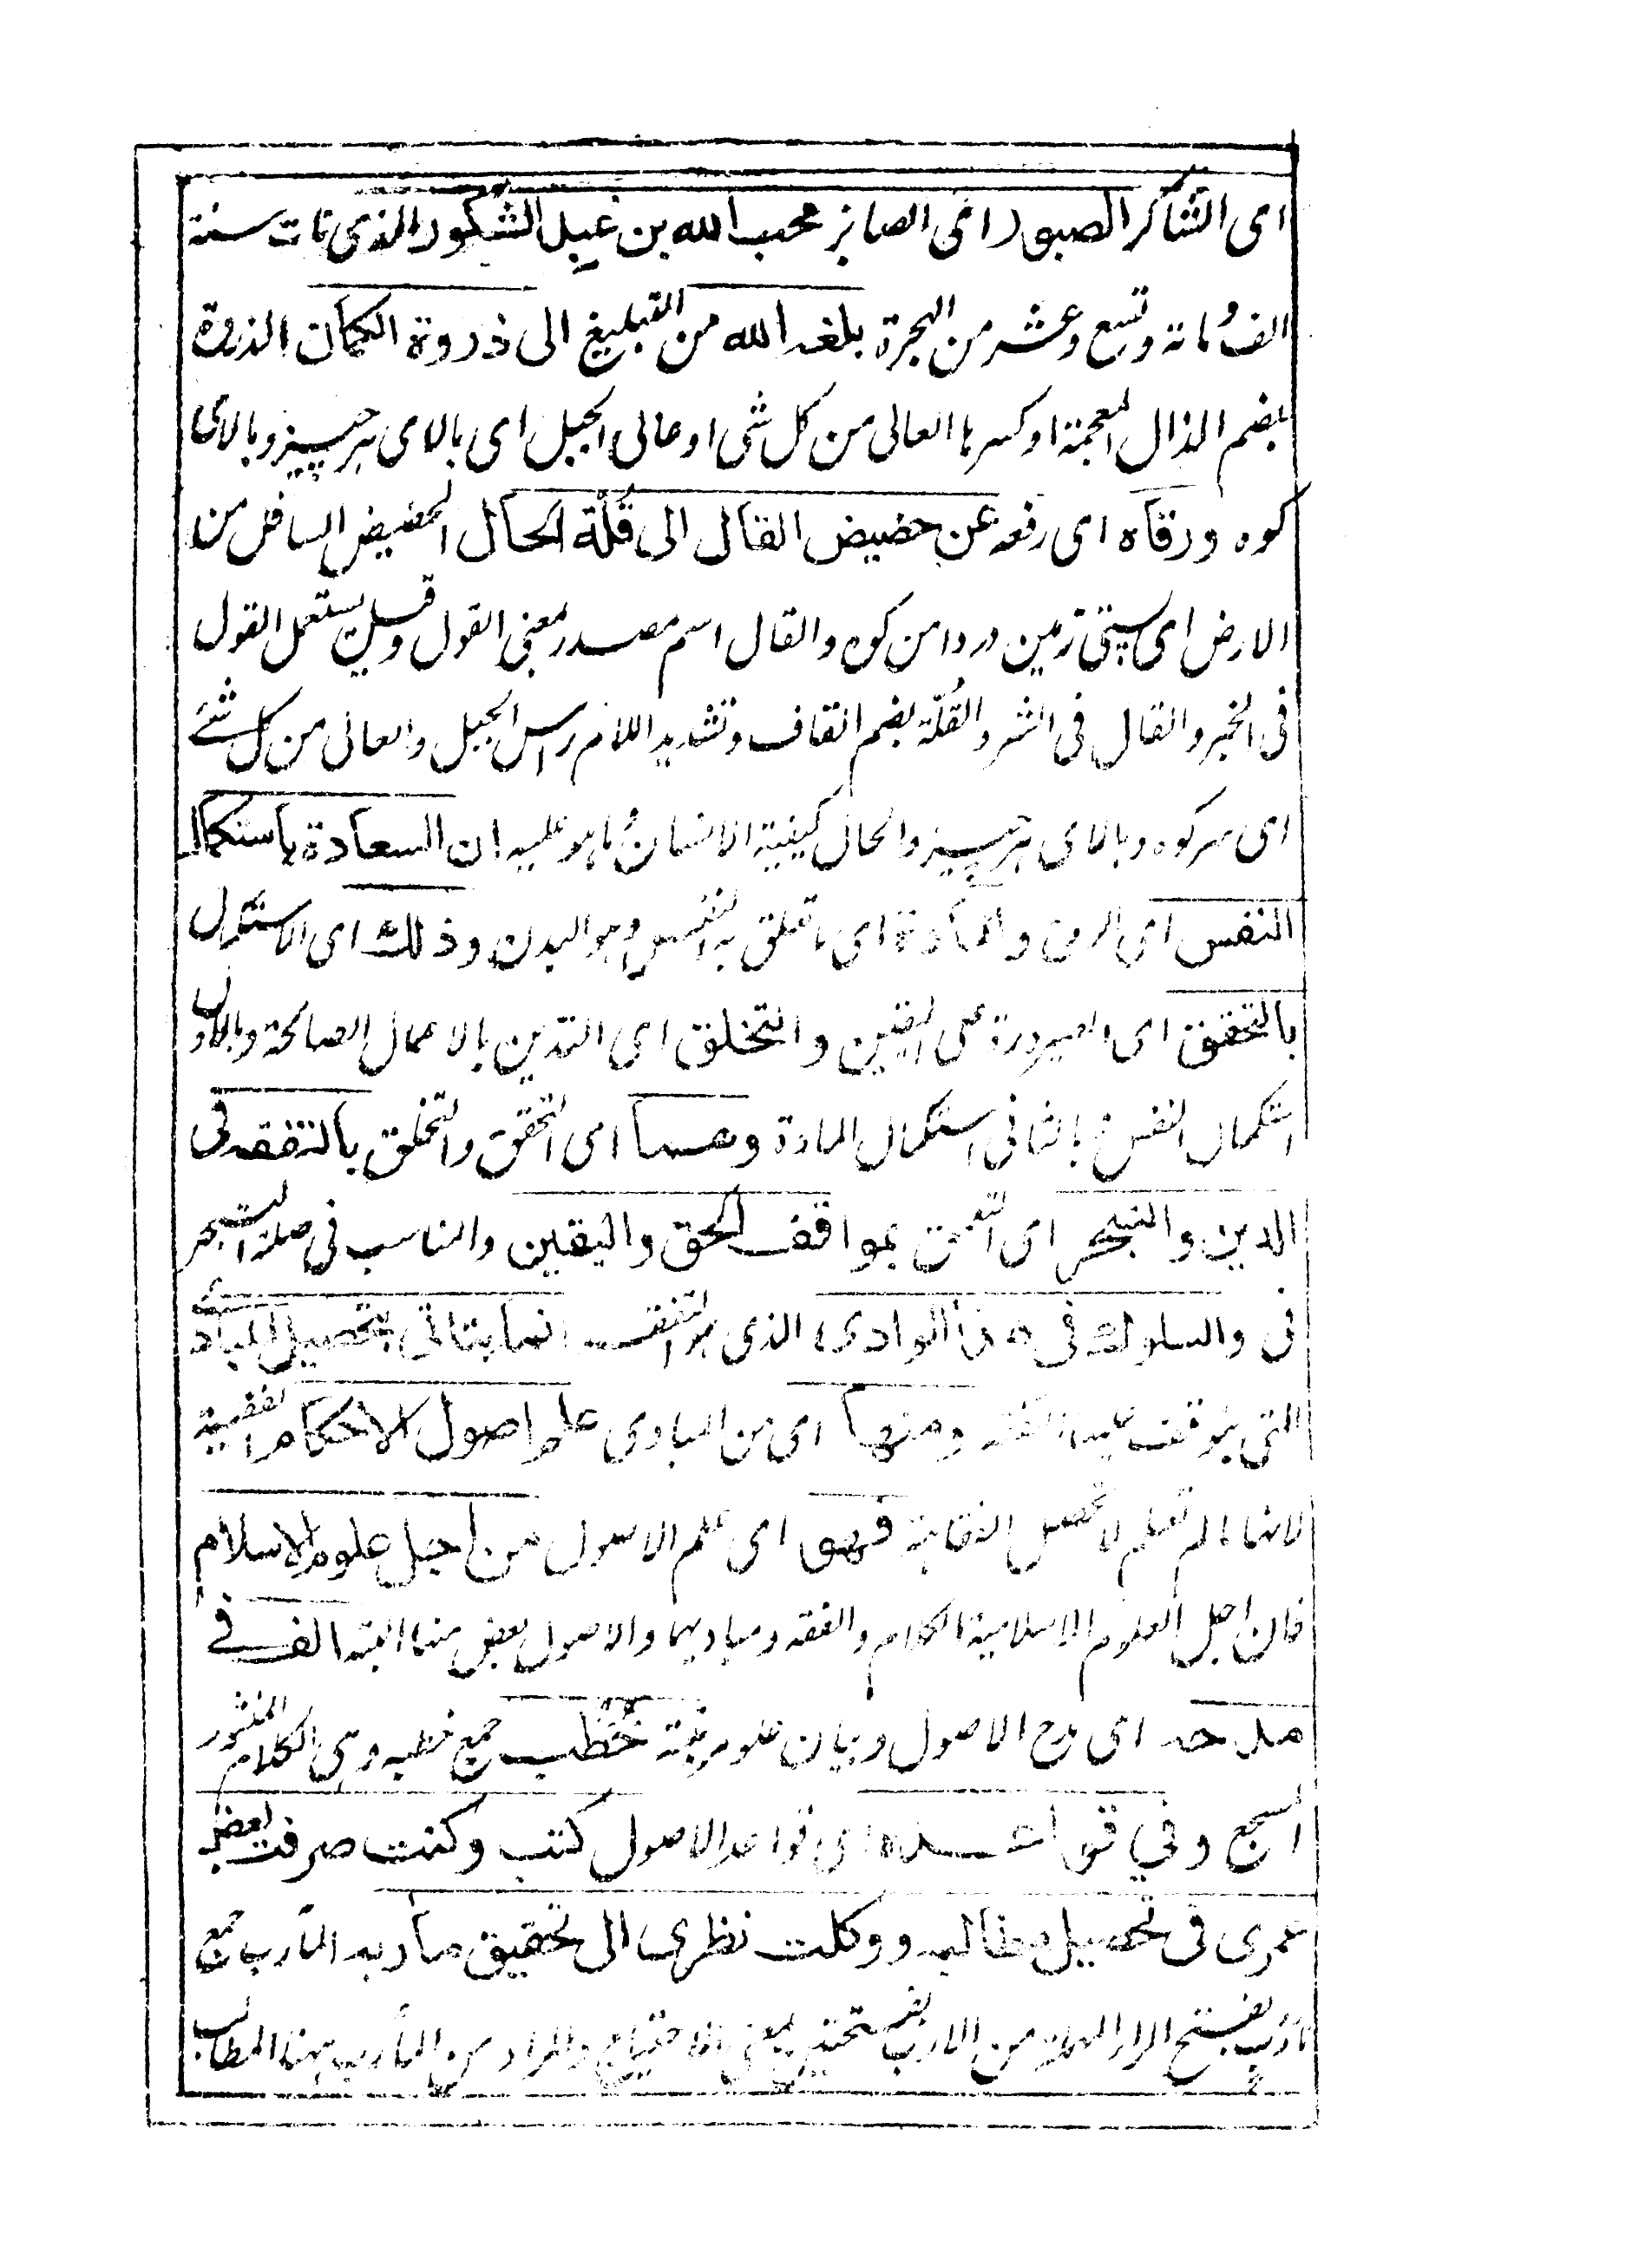 ای الشاکر الصبور ای الصابر محب الله بن عبد الشکور الذی مات سنة
الف ومائة وتسع وعشر من الهجرة بلغه الله من التبلیغ الی ذروة الکمال الذروة
بضم الذال المعجمة او کسرها العالی من کل شی او عالی الجبل ای بالای هر چیز و بالای
کوه ورقاه ای رفعه عن حضیض القال الی قُلّة الحال الحضیض السافل من
الارض ای پستی زمین در دامن کوه والقال اسم مصدر بمعنی القول وقیل یستعمل القول
فی الخیر والقال فی الشر والقُلّة بضم القاف وتشدید اللام راس الجبل والعالی من کل شئے
ای سر کوه و بالای هر چیز والحال کیفیة الانسان وما هو علیه ان السعادة باستکمال
النفس ای الروح والمادة ای ما تتعلق به النفس وهو البدن وذلک ای الاستکمال
بالتحقق ای الصیرورة علی الیقین والتخلق ای التدین بالاعمال الصالحة وبالاول
استکمال النفس وبالثانی استکمال المادة وهما ای التحقق والتخلق بالتفقه فی
الدین والتبحر ای التعمق بمواقف الحق والیقین والمناسب فی صلة التبحر
فی والسلوک فی هذا الوادی الذی هو التفقه انما یتاتی بتحصیل المبادی
التی یتوقف علیها الفقه ومنها ای من المبادی علم اصول الاحکام الفقهیة
لانها ما لم تعلم لا تحصل الفقاهة فهو ای علم الاصول من اجل علوم الاسلام
فان اجل العلوم الاسلامیة الکلام والفقه ومبادیهما والاصول بعض منها البتة الف فے
مدحه ای مدح الاصول وبیان علو مرتبته خُطَب جمع خطبه وهی الکلام المنثور
المسجع وفی قواعده ای قواعد الاصول کتب وکنت صرفت بعض
عمری فی تحصیل مطالبه ووکلت نظری الی تحقیق مآربه المآرب جمع
مأرب بفتح الراء المهملة من الارب بفتحتین بمعنی الاحتیاج والمراد من المآرب ههنا المطالب